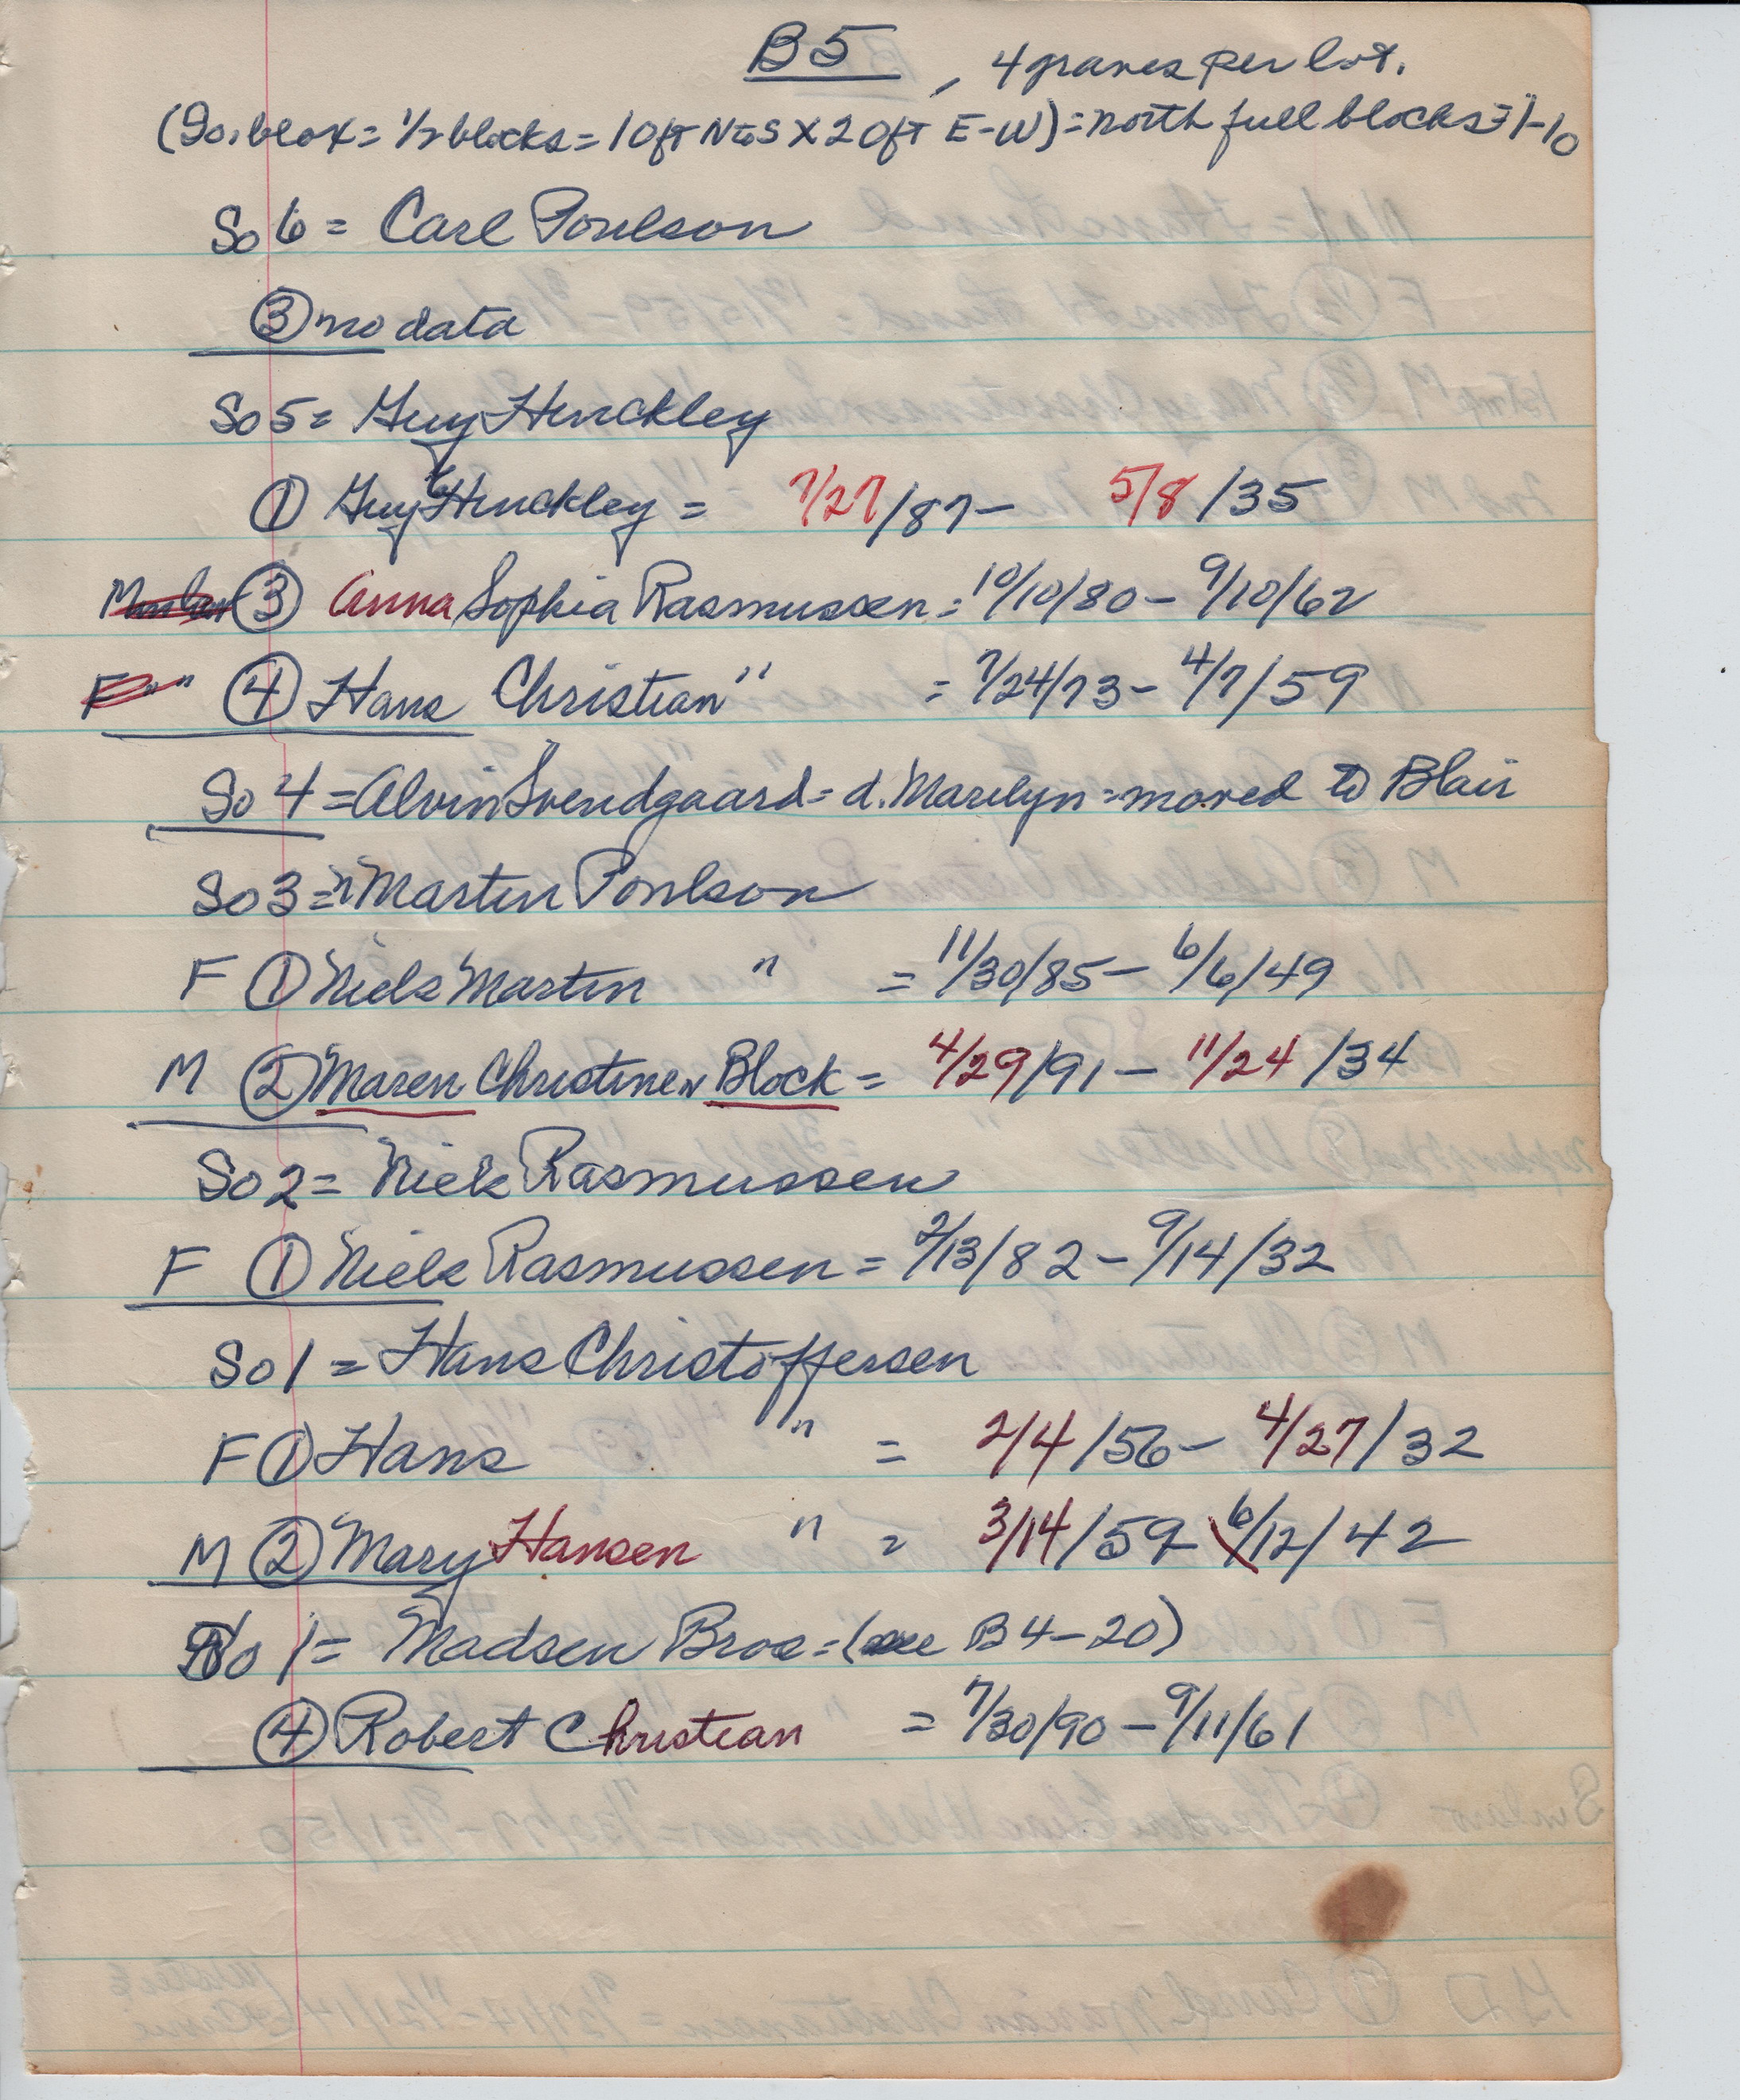 B5, 4 graves per lot.
(So. blox = 1/2 blocks = 10ft N to S X 20ft E-W) = north full blocks = 1-10
So 6 = Carl Poulson
③ no data
So 5 = Guy Hinckley
① Guy Hinckley = 7/27/87 - 5/8/35
③ Anna Sophia Rasmussen = 10/10/80 - 9/10/62
F " " ④ Hans Christian " = 7/24/73 - 4/7/59
So 4 = Alvin Svendgaard = d. Marilyn = moved to Blair
So 3 = Martin Poulson
F ① Niels Martin " = 11/30/85 - 6/6/49
M ② Maren Christine " Block = 4/29/91 - 11/24/34
So 2 = Niels Rasmussen
F ① Niels Rasmussen = 2/13/82 - 9/14/32
So 1 = Hans Christoffersen
F ① Hans " = 2/4/56 - 4/27/32
M ② Mary Hansen " = 3/14/59 6/12/42
No 1 = Madsen Bros = (see B4-20)
④ Robert Christian = 7/30/90 - 9/11/61